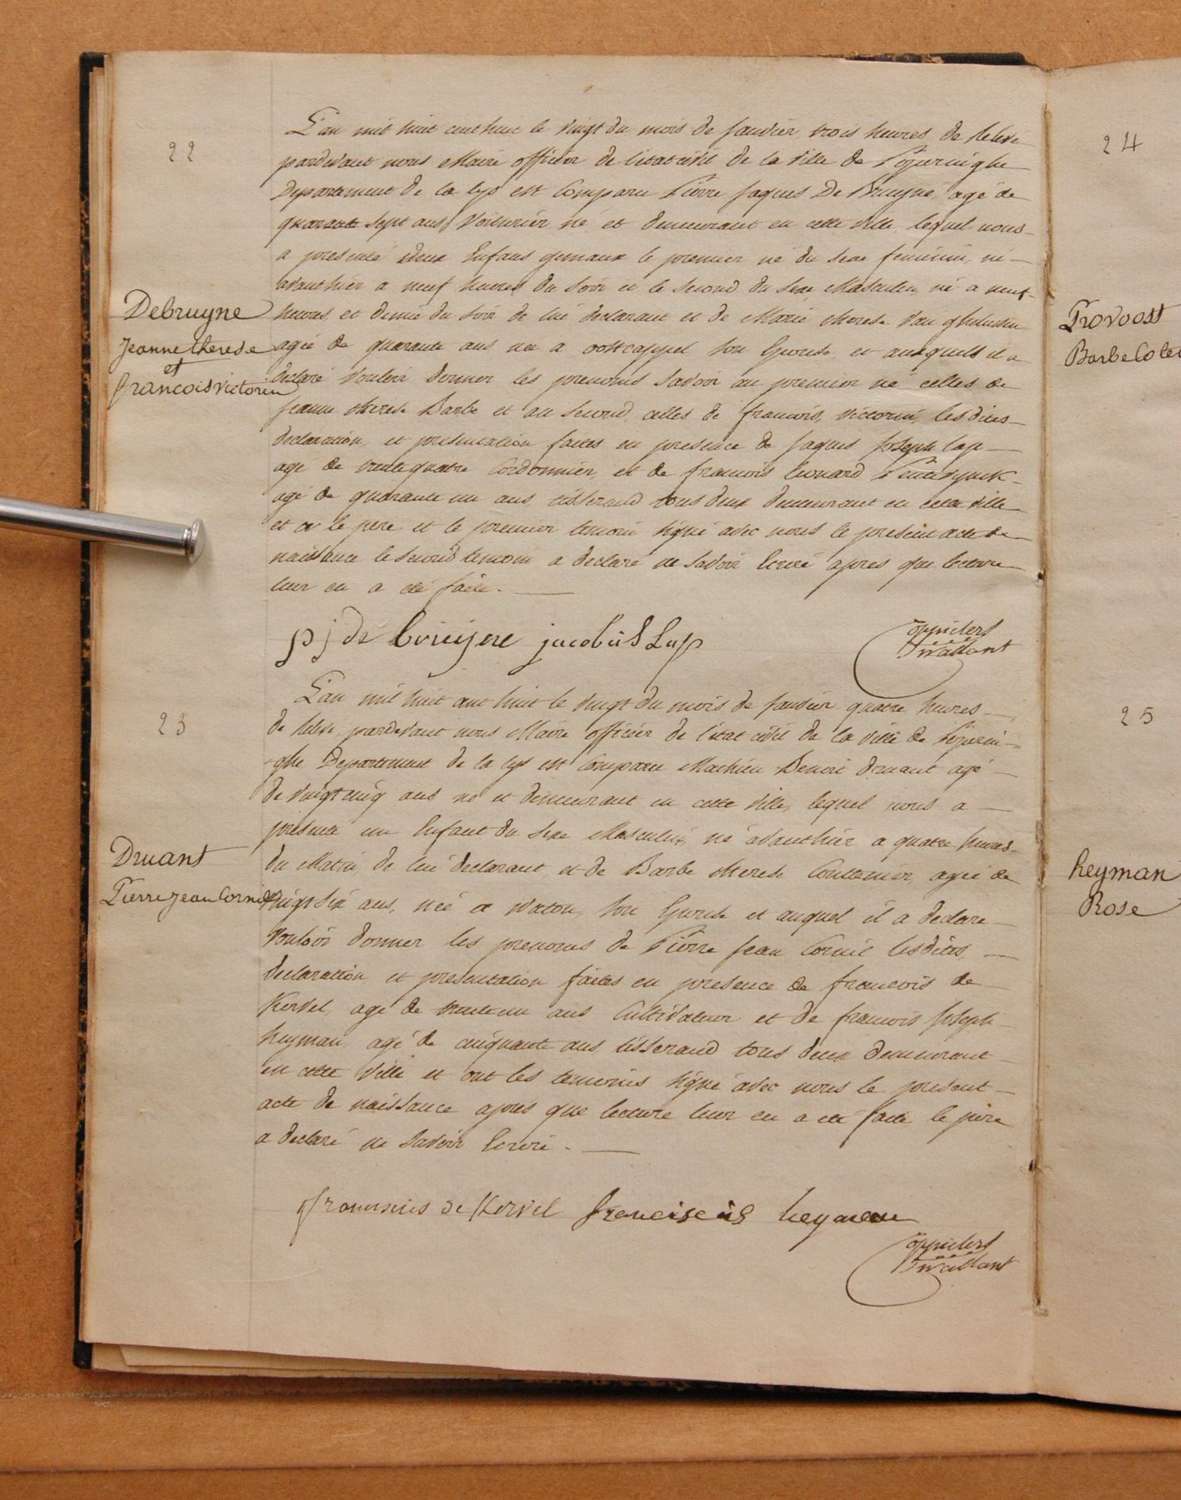 22
Debruyne
Jeanne therese
et
francois victorin
L'an mil huit cent huit le vingt du mois de Janvier trois heures de relevé
pardevant nous Maire officier de l'etat civil de la ville de Poperinghe
Departement de la Lys est Comparu Pierre Jaques De Bruyne agé de
quarante sept ans Voiturier né et demeurant en cette ville lequel nous
a presenté deux Enfans gemaux le premier né du sexe feminin, né
avanthier a neuf heures du Soir et le Second du Sexe Masculin né a neuf
heures et demie du soir de lui declarant et de Marie therese Van
agée de quarante ans née a son Epouse et auxquels il a
declaré vouloir donner les prenoms Savoir au premier né celles de
Jeanne therese Barbe et au Second celles de francois, victorin, les dites
declaration et presentation faites en presence de Jaques Joseph Lap
agé de trente quatre Cordonnier et de francois Leonard
agé de quarante un ans tisserand tous deux demeurant en cette ville
et a le pere et le premier temoin signé avec nous le present acte de
naissance le second temoin a declaré ne savoir Ecrire apres que lecture
leur en a eté faite.
p j de bruijne jacobus Lap
23
Druant
Pierre Jean Cornil
L'an mil huit cent huit le vingt du mois de Janvier quatre heures
de relevé, pardevant nous Maire officier de l'etat civil de la ville de Poperin-
ghe Departement de la Lys est comparu Mathieu Benoit druant agé
de vingt cinq ans né et demeurant en cette ville, lequel nous a
presenté un Enfant du sexe Masculin né avanthier a quatre heures
du Matin de lui declarant et de Barbe therese agée de
vingt six ans, née a Watou, son Epouse et auquel il a declaré
vouloir donner les prenoms de Pierre Jean Cornil les dites
declaration et presentation faites en presence de francois de
Kervel agé de trente un ans Cultivateur et de francois Joseph
heyman agé de cinquante ans tisserand tous deux demeurant
en cette ville et ont les temoins signé avec nous le present
acte de naissance apres que lecture leur en a eté faite le père
a declaré ne savoir Ecrire.
fransisus de Kervel franciscus heyman
24
Provoost
Barbe
25
heyman
Rose